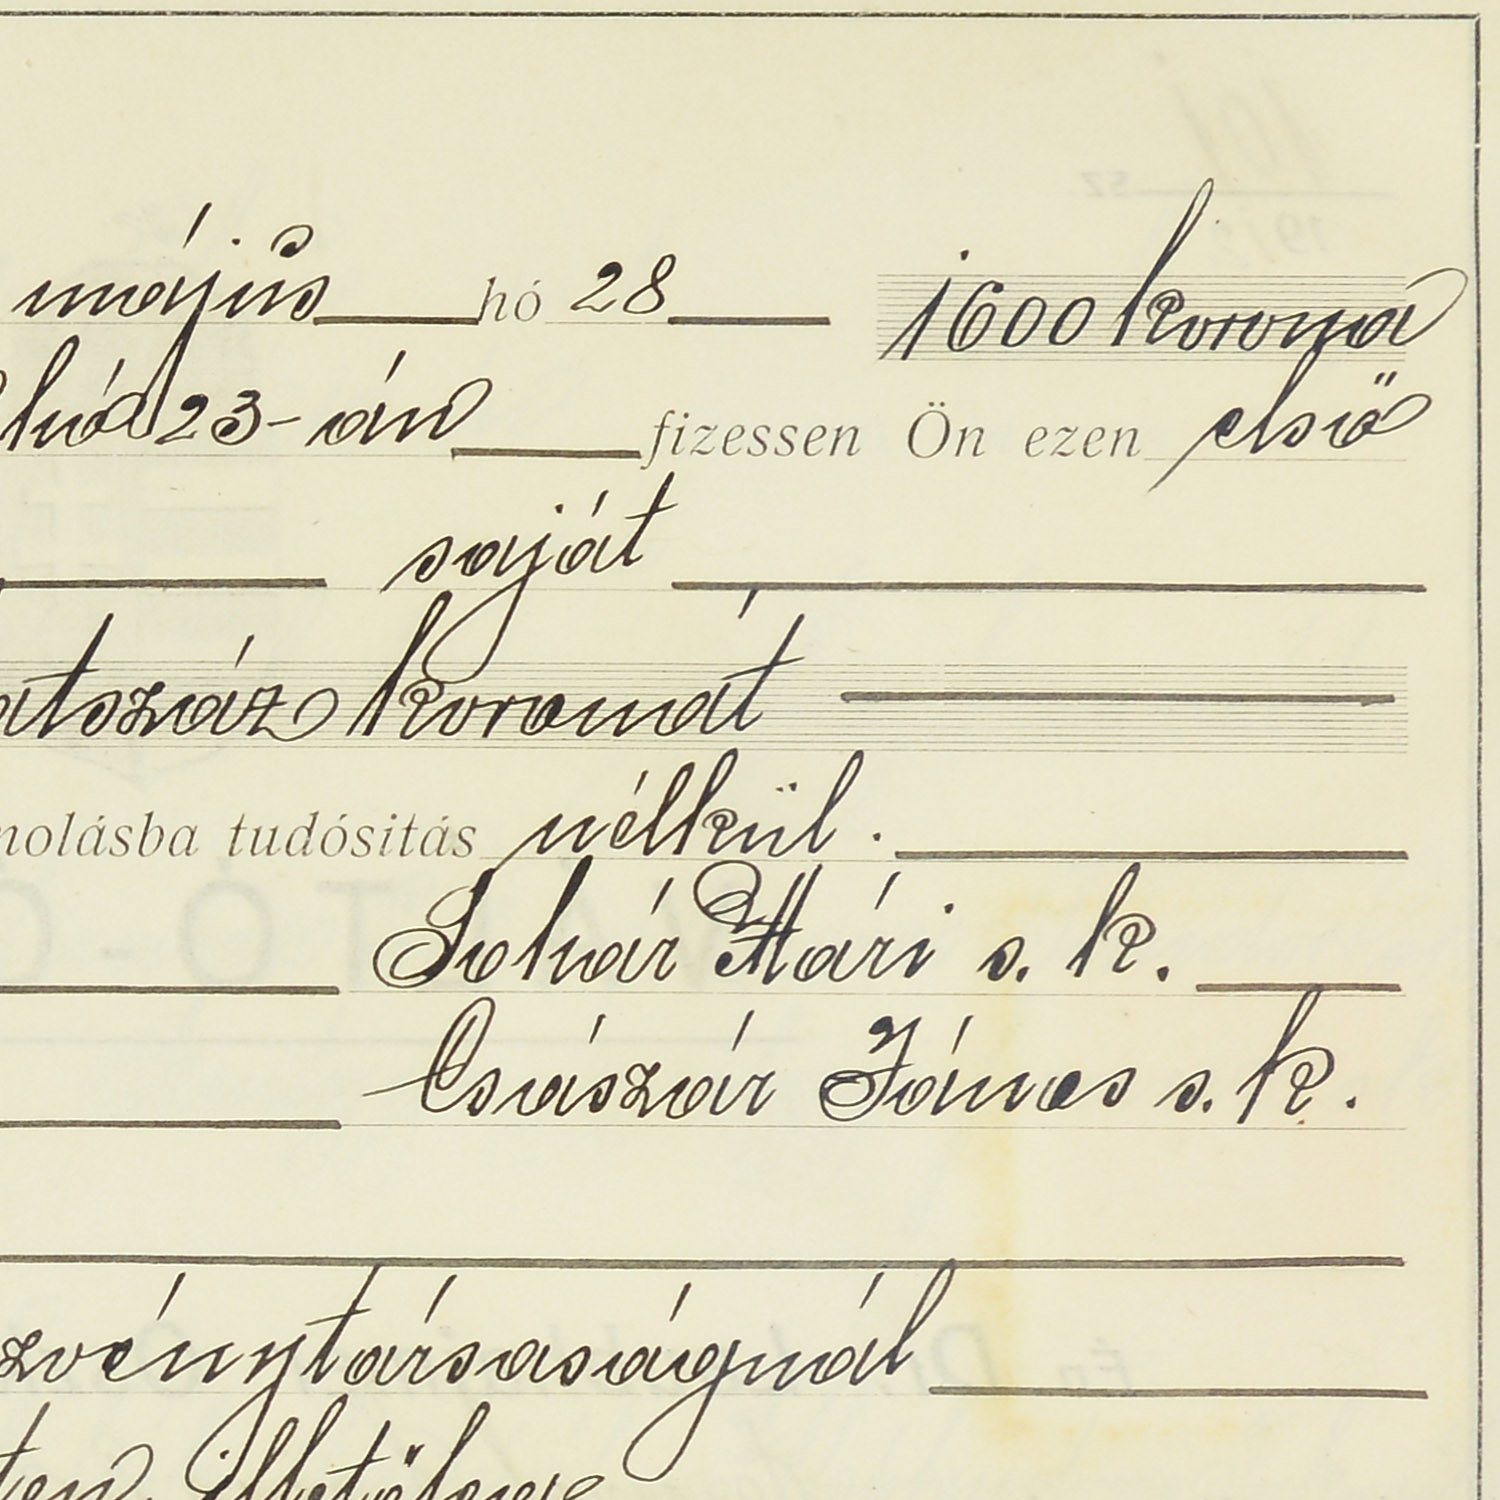 május hó 28 1600 korona
hó 23-án fizessen Ön ezen első
saját
atszáz koronát
nolásba tudósitás nélkül.
Sohár Mári s. k.
Császár János s. k.
zvénytársaságnál
illetőleg